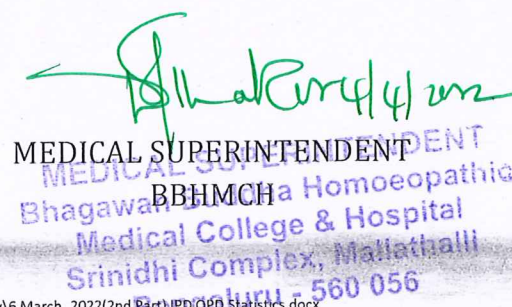 4/4/2022
MEDICAL SUPERINTENDENT
BBHMCH
MEDICAL SUPERINTENDENT
Bhagawan Buddha Homoeopathic
Medical College & Hospital
Srinidhi Complex, Mallathalli
- 560 056
6 March, 2022(2nd Part)IPD OPD Statistics.docx